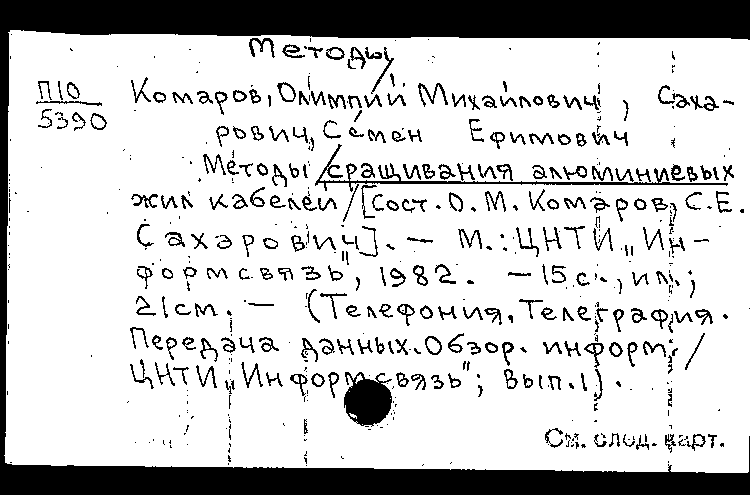 Методы
П10
5390
Комаров, Олимпий Михайлович, Саха-
рович, Семен Ефимович
Методы сращивания алюминиевых
жил кабелей / [Сост. О. М. Комаров, С. Е.
Сахарович]. — М.: ЦНТИ „Ин-
формсвязь", 1982. — 15 с., ил.;
21 см. — (Телефония. Телеграфия.
Передача данных. Обзор. информ. /
ЦНТИ „Информсвязь"; Вып. 1).
См. след. карт.